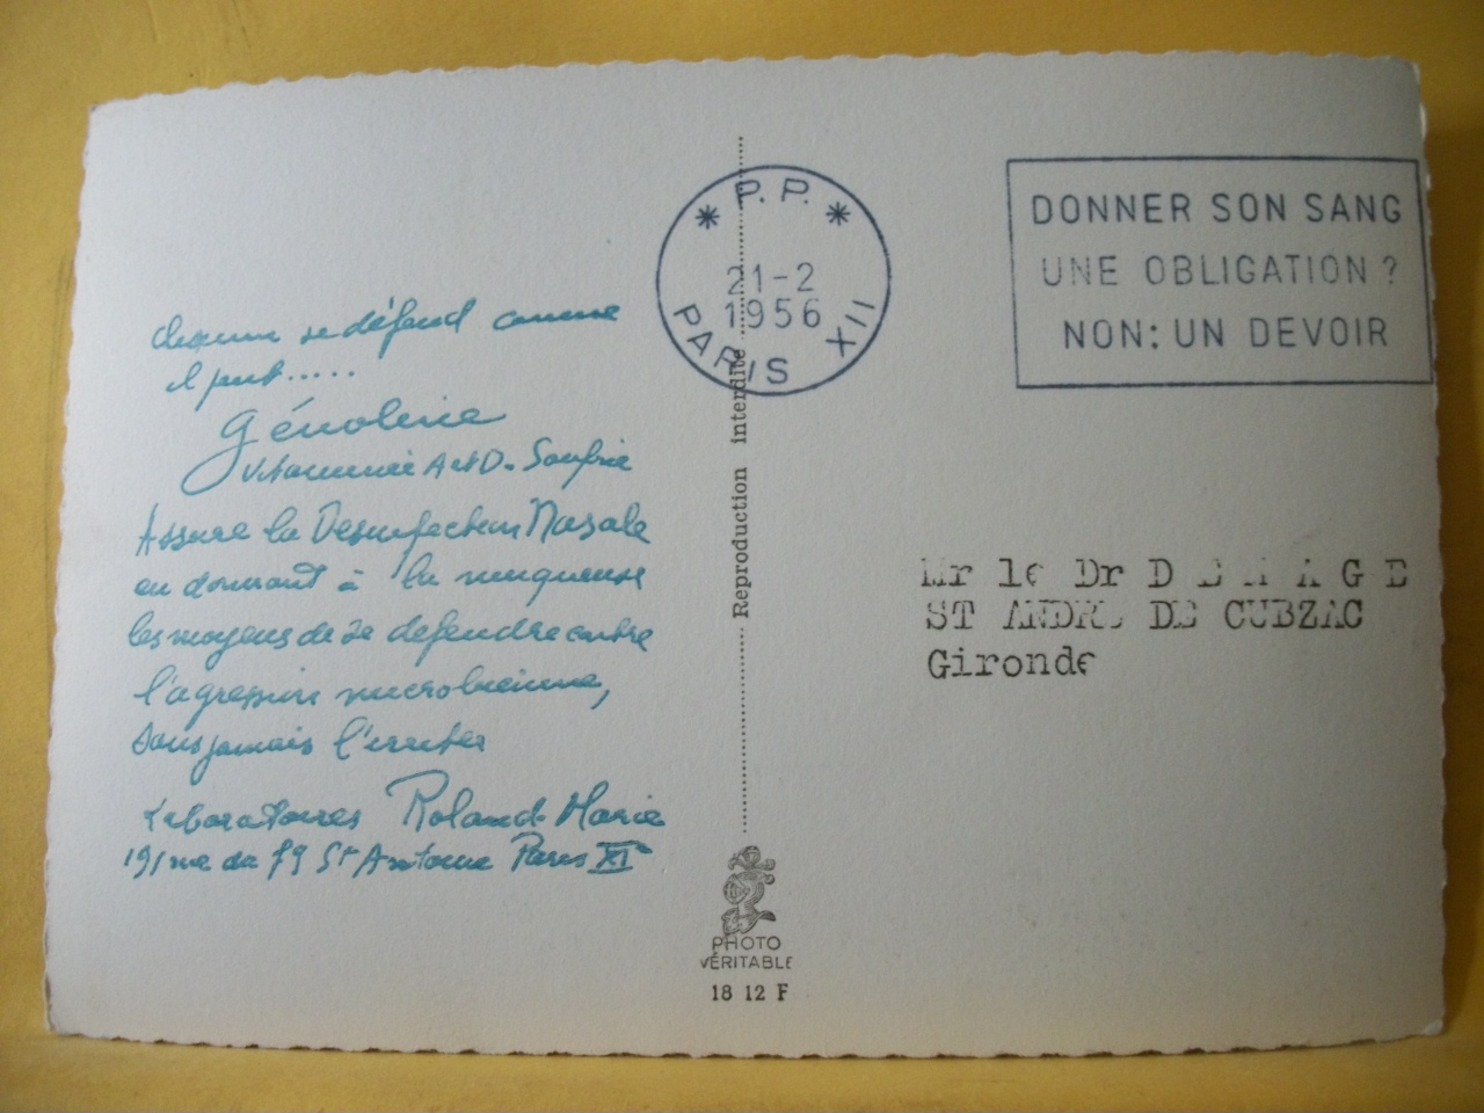 Chacun se défend comme
il peut.....
Génoline
Vitaminée A et D. Soufrée
Assure la Desinfection Nasale
en donnant à la muqueuse
les moyens de se defendre contre
l'agression microbienne,
sans jamais l'irriter
Laboratoires Roland-Marie
191 rue du Fg St Antoine Paris XIe
Reproduction interdite
PHOTO
VÉRITABLE
18 12 F
* P. P. *
21-2
1956
PARIS XII
DONNER SON SANG
UNE OBLIGATION ?
NON: UN DEVOIR
Mr le Dr
ST ANDRE DE CUBZAC
Gironde